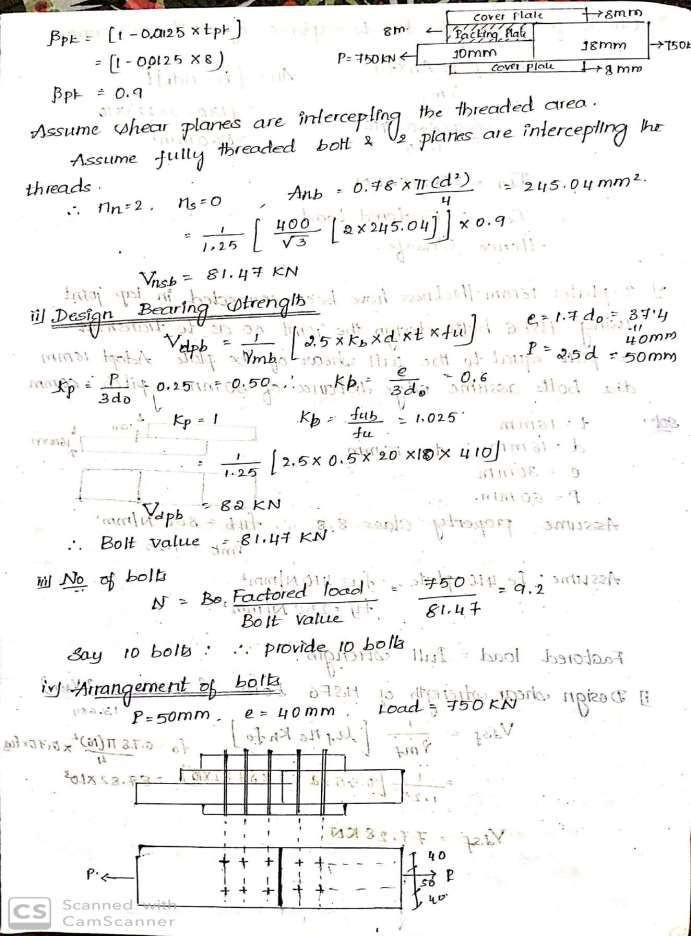 βpk = [1 - 0.0125 x tpk]
= [1 - 0.0125 x 8]
βpk = 0.9
cover plate 8mm
8m Packing Plate
P = 750 KN 10mm 18mm
cover plate 8 mm
Assume shear planes are intercepting the threaded area.
Assume fully threaded bolt & 2 planes are intercepting the
threads.
∴ nn = 2, ns = 0, Anb = 0.78 x π(d²) / 4 = 245.04 mm².
= 1/1.25 [400/√3 [2 x 245.04]] x 0.9
Vnsb = 81.47 KN
ii) Design Bearing Strength
Vdpb = 1/γmb [2.5 x Kb x d x t x fu]
e = 1.7 do = 37.4
40mm
P = 2.5d = 50mm
Kp = P/3do - 0.25 = 0.50 Kb = e/3do = 0.6
Kp = 1 Kb = fub/fu = 1.025
= 1/1.25 [2.5 x 0.5 x 20 x 10 x 410]
Vdpb = 82 KN
∴ Bolt value = 81.47 KN
iii) No of bolts
N = Factored load / Bolt value = 750 / 81.47 = 9.2
Say 10 bolts ∴ provide 10 bolts
iv) Arrangement of bolts
P = 50mm, e = 40 mm, Load = 750 KN
40
P P
50
40
CS Scanned with
CamScanner